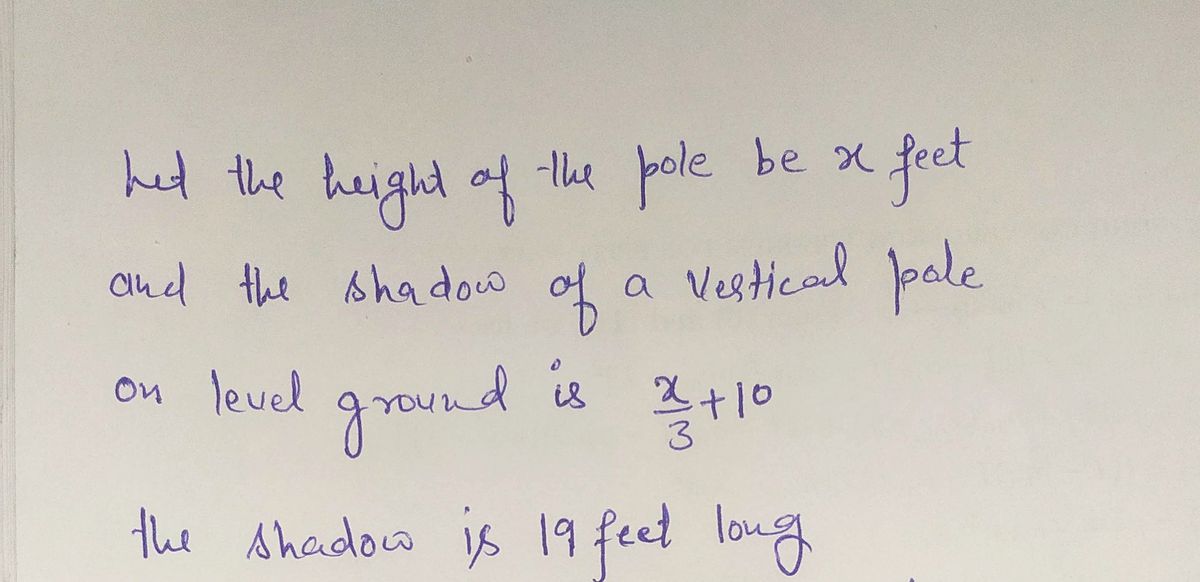 Let the height of the pole be x feet
and the shadow of a vertical pole
on level ground is x/3 + 10
the shadow is 19 feet long